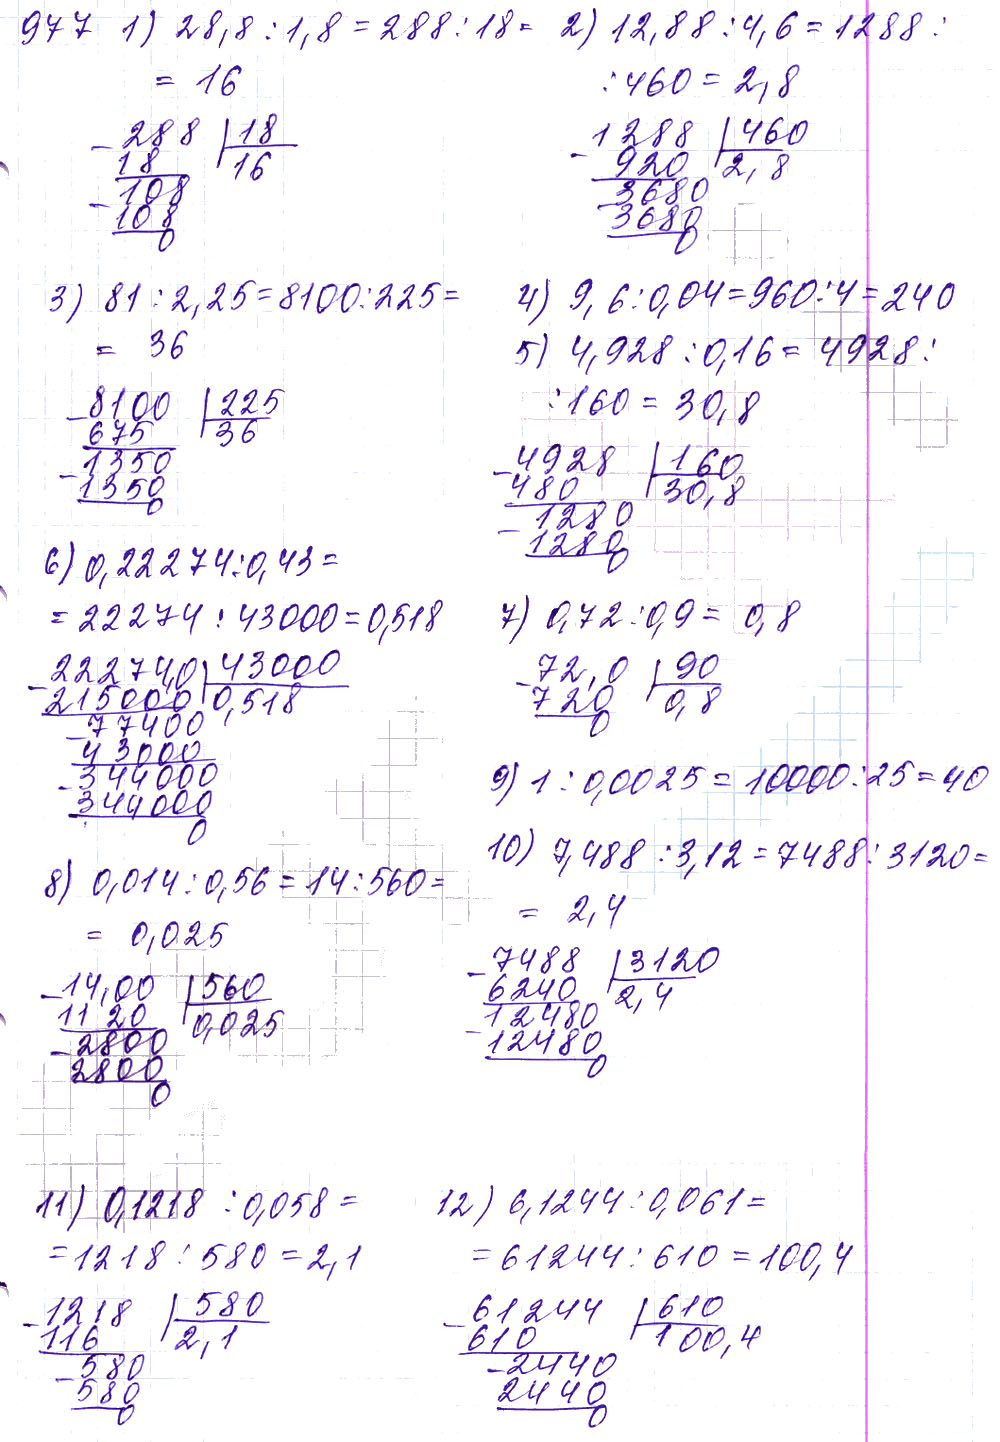 977 1) 28,8 : 1,8 = 288 : 18 =
= 16
288 18
18 16
108
108
0
2) 12,88 : 4,6 = 1288 :
: 460 = 2,8
1288 460
920 2,8
3680
3680
0
3) 81 : 2,25 = 8100 : 225 =
= 36
8100 225
675 36
1350
1350
0
4) 9,6 : 0,04 = 960 : 4 = 240
5) 4,928 : 0,16 = 4928 :
: 160 = 30,8
4928 160
480 30,8
1280
1280
0
6) 0,22274 : 0,43 =
= 22274 : 43000 = 0,518
22274,0 43000
215000 0,518
77400
43000
344000
344000
0
7) 0,72 : 0,9 = 0,8
72,0 90
720 0,8
0
8) 0,014 : 0,56 = 14 : 560 =
= 0,025
14,00 560
1120 0,025
2800
2800
0
9) 1 : 0,0025 = 10000 : 25 = 40
10) 7,488 : 3,12 = 7488 : 3120 =
= 2,4
7488 3120
6240 2,4
12480
12480
0
11) 0,1218 : 0,058 =
= 1218 : 580 = 2,1
1218 580
116 2,1
580
580
0
12) 6,1244 : 0,061 =
= 61244 : 610 = 100,4
61244 610
610 100,4
2440
2440
0